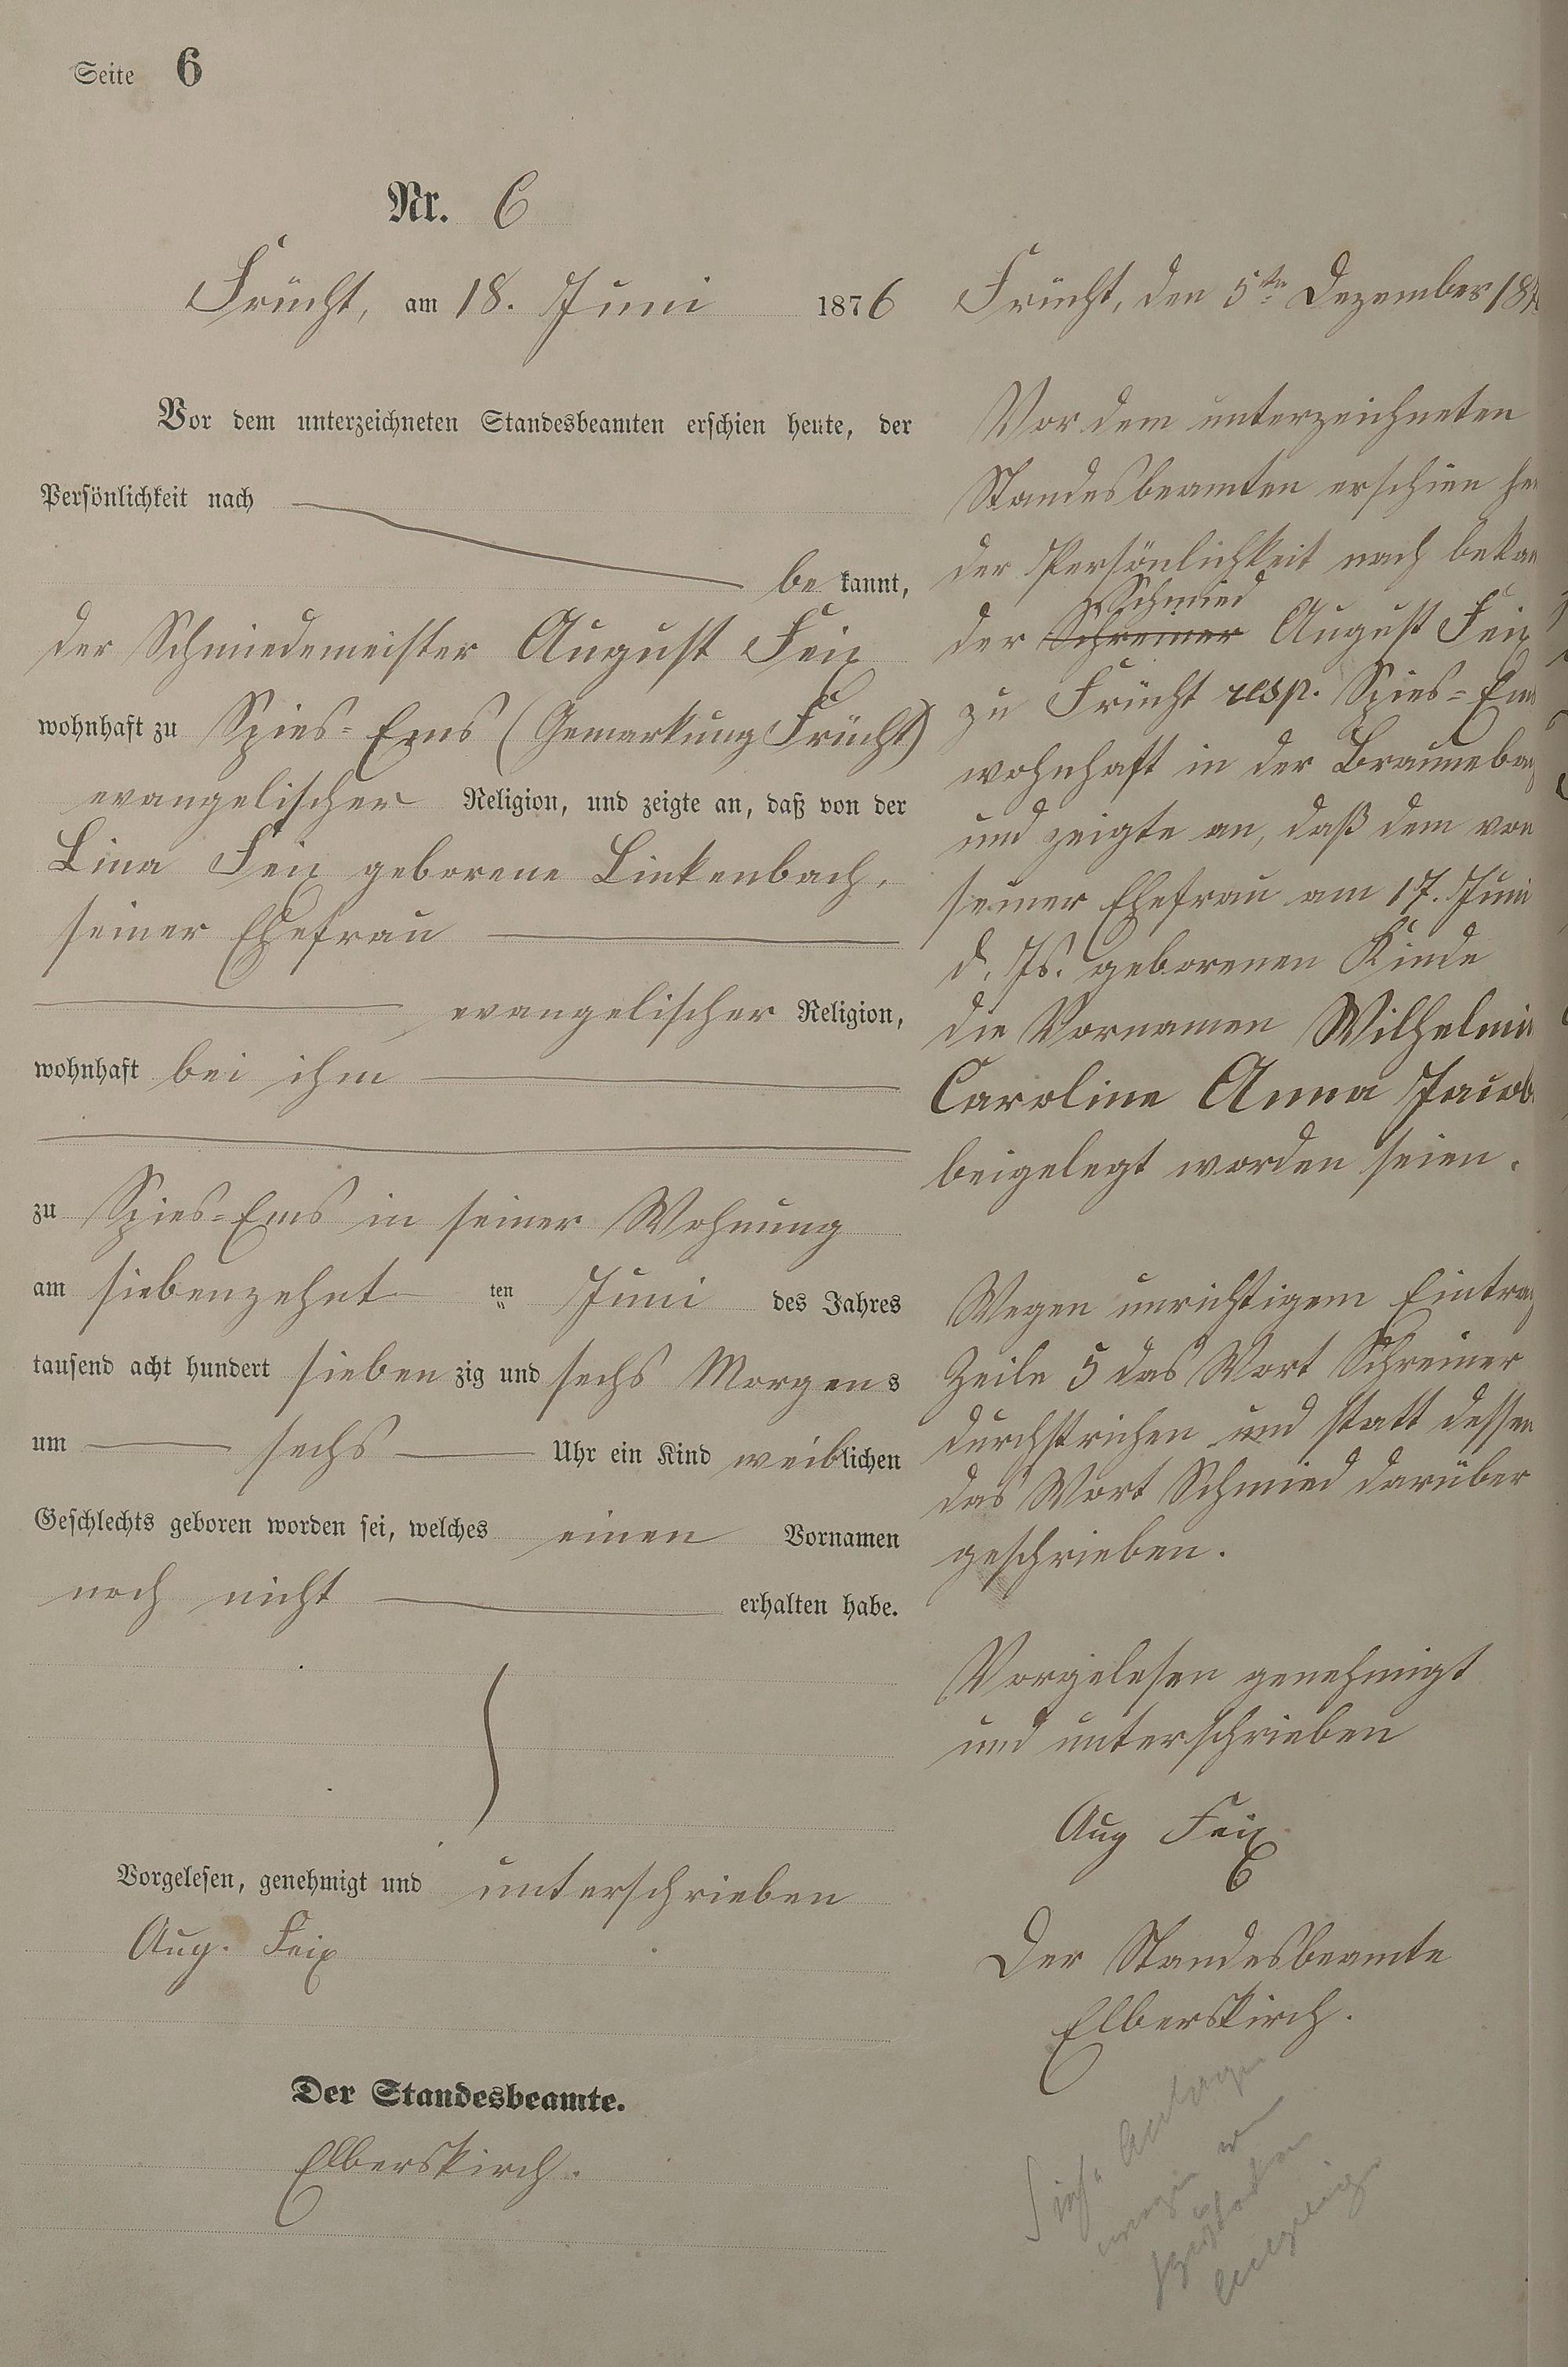 Seite 6
Nr. 6
Frücht, am 18. Juni 1876
Vor dem unterzeichneten Standesbeamten erschien heute, der
Persönlichkeit nach
be kannt,
der Schmiedemeister August Feix
wohnhaft zu Spies-Ems (Gemarkung Frücht)
evangelischer Religion, und zeigte an, daß von der
Lina Feix geborene Linkenbach,
seiner Ehefrau
evangelischer Religion,
wohnhaft bei ihm
zu Spies-Ems in seiner Wohnung
am siebenzehnt ten Juni des Jahres
tausend acht hundert sieben zig und sechs Morgens
um sechs Uhr ein Kind weiblichen
Geschlechts geboren worden sei, welches einen Vornamen
noch nicht erhalten habe.
Vorgelesen, genehmigt und unterschrieben
Aug. Feix
Der Standesbeamte.
Elberskirch.
Frücht, den 5ten Dezember 187
Vor dem unterzeichneten
Standesbeamten erschien he
der Persönlichkeit nach bekan
Schmied
der Schreiner August Feix
zu Frücht resp. Spies-Ems
wohnhaft in der
und zeigte an, daß dem von
seiner Ehefrau am 17. Juni
d. Js. geborenen Kinde
die Vornamen Wilhelmi
Caroline Anna Jacob
beigelegt worden seien.
Wegen unrichtigem Eintrag
Zeile 5 das Wort Schreiner
durchstrichen und statt dessen
das Wort Schmied darüber
geschrieben.
Vorgelesen genehmigt
und unterschrieben
Aug Feix
Der Standesbeamte
Elberskirch.